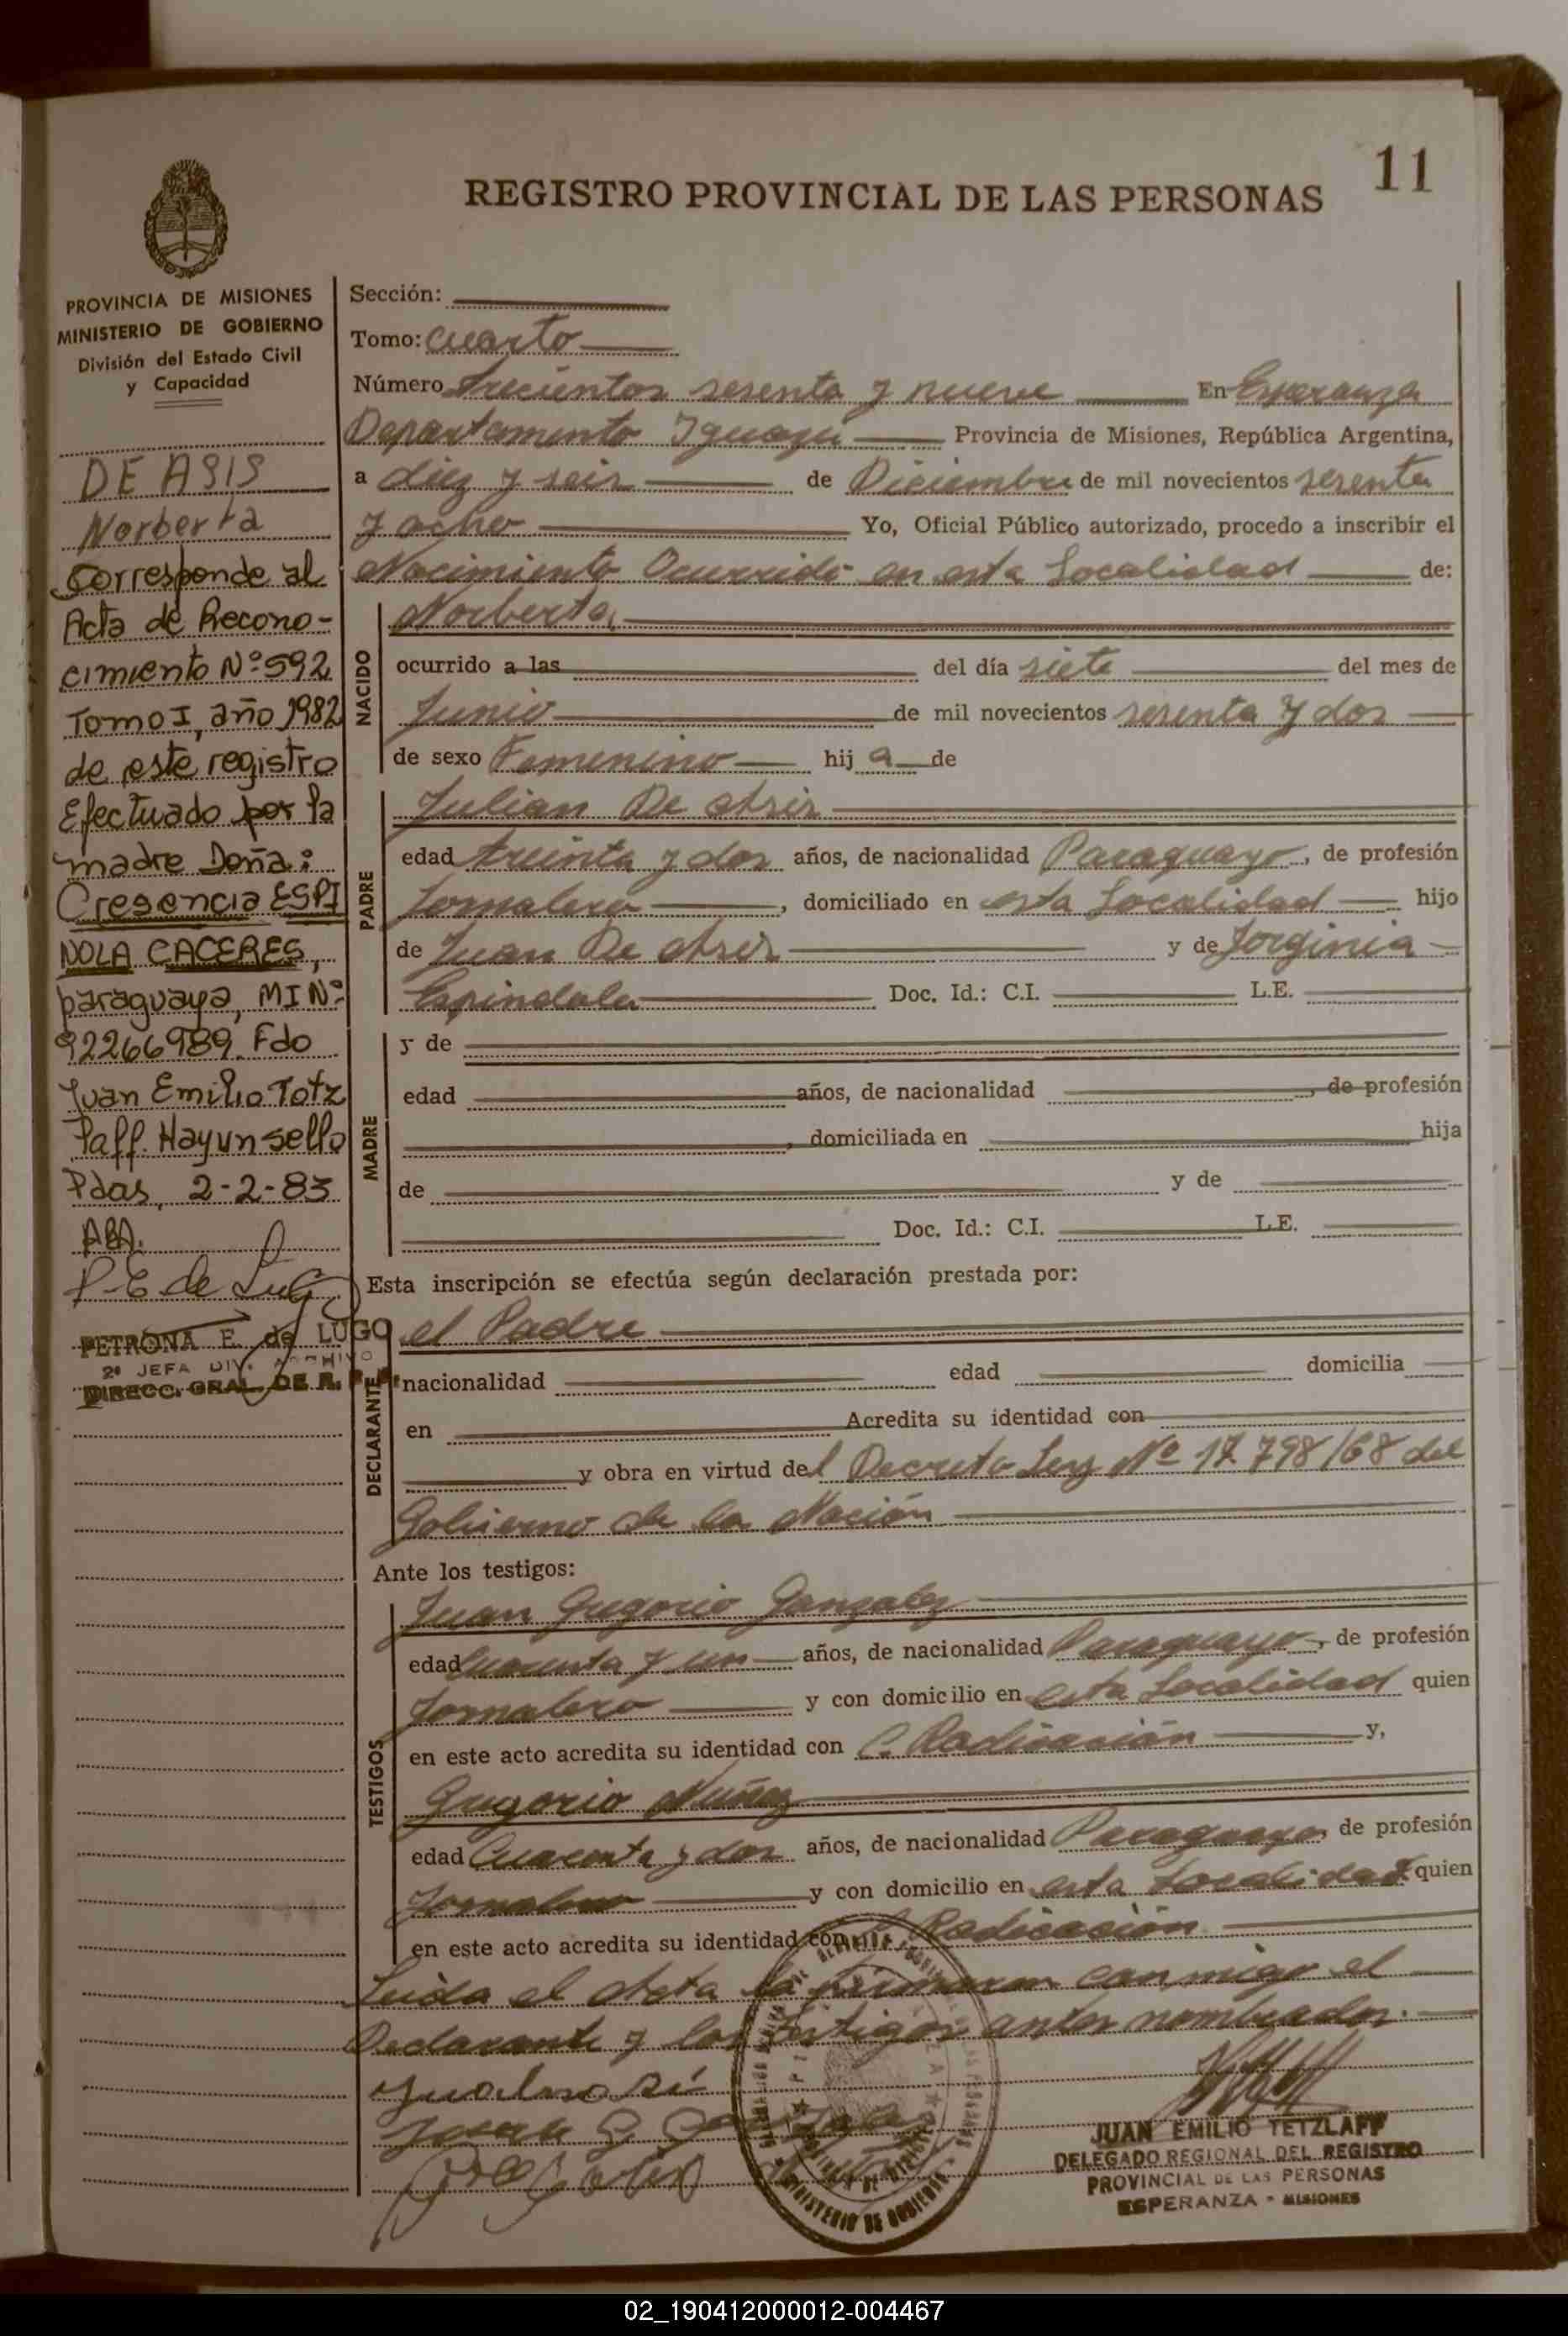 11
REGISTRO PROVINCIAL DE LAS PERSONAS
PROVINCIA DE MISIONES
MINISTERIO DE GOBIERNO
División del Estado Civil
y Capacidad
DE ASIS
Norberta
Corresponde al
Acta de Recono-
cimiento Nº 592
Tomo I, año 1982
de este registro
Efectuado por la
madre Doña:
Cresencia ESPI
NOLA CACERES,
paraguaya, MI Nº
92266989. Fdo
Juan Emilio Totz
laff. Hay un sello
Pdas, 2-2-83
P.E. de Lugo
PETRONA E. de LUGO
2º JEFA DIV. ARCHIVO
DIRECC. GRAL. DE R.
Sección:
Tomo: Cuarto
Número Trecientos sesenta y nueve En Esperanza
Departamento Iguazú Provincia de Misiones, República Argentina,
a diez y seis de Diciembre de mil novecientos sesenta
y ocho Yo, Oficial Público autorizado, procedo a inscribir el
Nacimiento Ocurrido en esta Localidad de:
NACIDO
Norberta
ocurrido a las del día siete del mes de
Junio de mil novecientos sesenta y dos
de sexo Femenino hij a de
PADRE
Julian De Asis
edad treinta y dos años, de nacionalidad Paraguayo, de profesión
Jornalero, domiciliado en esta Localidad hijo
de Juan De Asis y de Jorginia
Espindola Doc. Id.: C.I. L.E.
MADRE
y de
edad años, de nacionalidad , de profesión
, domiciliada en hija
de y de
Doc. Id.: C.I. L.E.
Esta inscripción se efectúa según declaración prestada por:
DECLARANTE
el Padre
nacionalidad edad domicilia
en Acredita su identidad con
y obra en virtud del Decreto Ley Nº 17.798/68 del
Gobierno de la Nación
Ante los testigos:
TESTIGOS
Juan Gregorio Gonzalez
edad Cuarenta y un años, de nacionalidad Paraguayo, de profesión
Jornalero y con domicilio en esta Localidad quien
en este acto acredita su identidad con C. Radicación y,
Gregorio Nuñez
edad Cuarenta y dos años, de nacionalidad Paraguayo, de profesión
Jornalero y con domicilio en esta Localidad quien
en este acto acredita su identidad con C. Radicación
Leida el Acta la firmaron conmigo el
Declarante y los testigos antes nombrados.
JUAN EMILIO TETZLAFF
DELEGADO REGIONAL DEL REGISTRO
PROVINCIAL DE LAS PERSONAS
ESPERANZA - MISIONES
MINISTERIO DE GOBIERNO
02_190412000012-004467